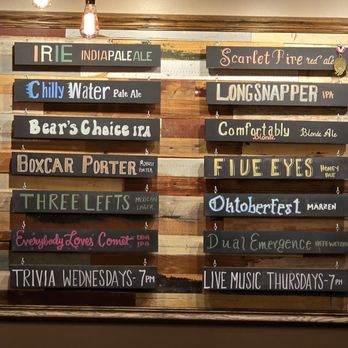 IRIE INDIA PALE ALE
Chilly Water Pale Ale
Bear's Choice IPA
BOXCAR PORTER ROBUST PORTER
THREE LEFTS MEXICAN LAGER
Everybody Loves Comet DDH IPA
TRIVIA WEDNESDAYS- 7PM
Scarlet Fire red ale
LONGSNAPPER IPA
Comfortably Blonde Blonde Ale
FIVE EYES HONEY
Oktoberfest MÄRZEN
Dual Emergence
LIVE MUSIC THURSDAYS- 7PM